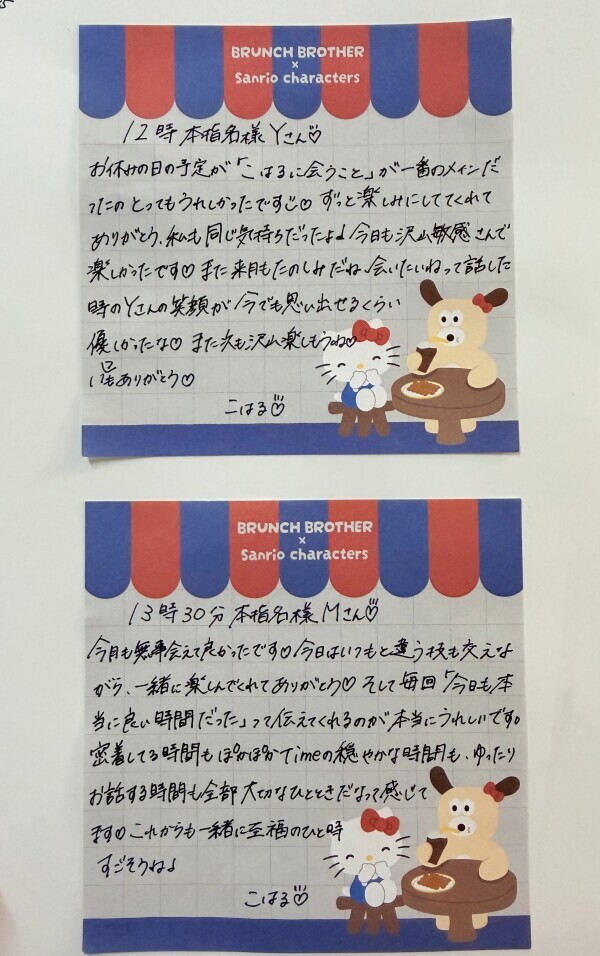 BRUNCH BROTHER
×
Sanrio characters
12時 本指名様 Yさん♡
お休みの日の予定が「こはるに会うこと」が一番のメインだ
ったの とってもうれしかったです♡ ずっと楽しみにしててくれて
ありがとう、私も同じ気持ちだったよ♪ 今日も沢山敏感さんで
楽しかったです♡ また来月もたのしみだね 会いたいねって話した
時のYさんの笑顔が 今でも思い出せるくらい
優しかったな♡ また次も沢山楽しもうね♡
いつもありがとう♡
こはる♡
BRUNCH BROTHER
×
Sanrio characters
13時30分 本指名様 Mさん♡
今月も無事会えて良かったです♡ 今日はいつもと違う技も交えな
がら、一緒に楽しんでくれてありがとう♡ そして毎回「今日も本
当に良い時間だった」って伝えてくれるのが本当にうれしいです。
密着してる時間もぽかぽかTimeの穏やかな時間も、ゆったり
お話する時間も全部大切なひとときだなって感じて
ます♡ これからも一緒に至福のひと時
すごそうね♪
こはる♡